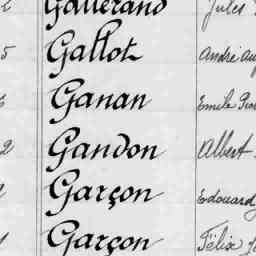 Gallerand Jules
5 Gallot André
Ganan Emile
2 Gandon Albert
Garçon Edouard
Garçon Félix